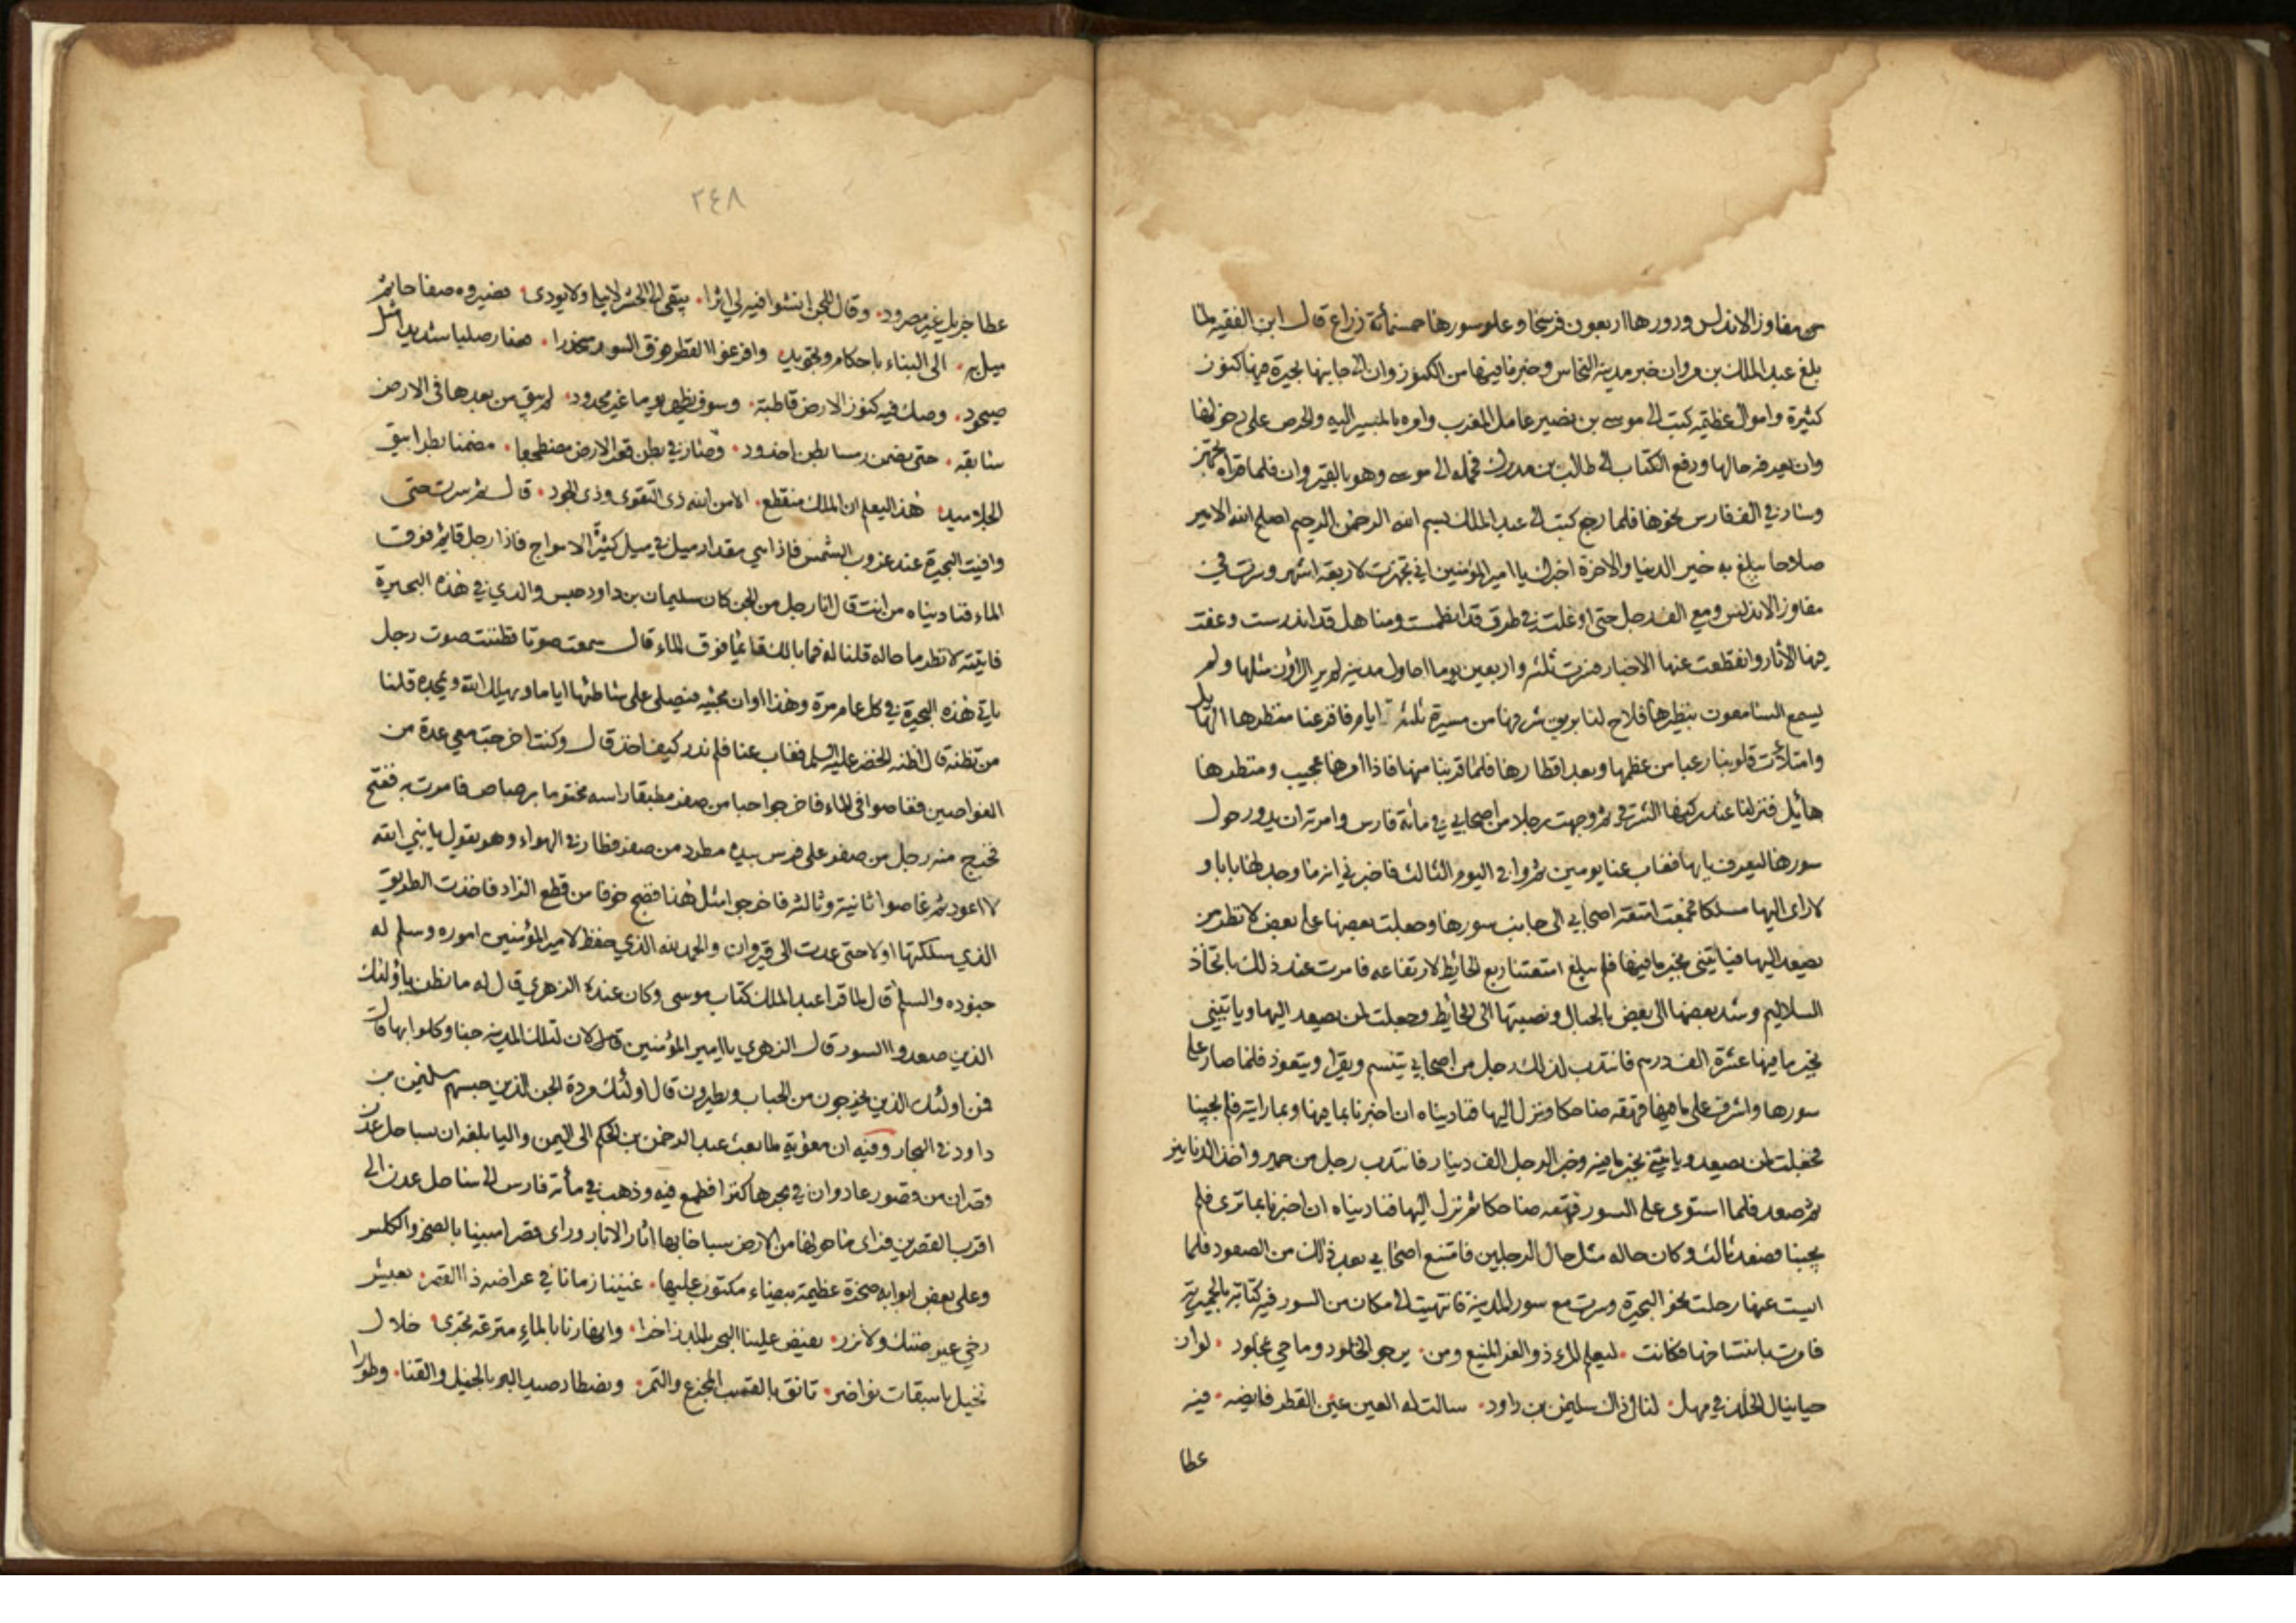 من مفاوز الاندلس ودورها اربعون فرسخا وعلو سورها خمسمأة ذراع قال ابن الفقيه لما
بلغ عبد الملك بن مروان خبر مدينة النحاس وخبر ما فيها من الكنوز وان الى جانبها بحيرة فيها كنوز
كثيرة واموال عظيمة كتب الى موسى بن نصير عامل المغرب وامره بالمسير اليه والحرص على دخولها
وان يعرفه حالها ودفع الكتاب الى طالب بن مدرك فحمله الى موسى وهو بالقيروان فلما قراه تجهز
وسار في الف فارس نحوها فلما رجع كتب الى عبد الملك بسم الله الرحمن الرحيم اصلح الله الامير
صلاحا يبلغ به خير الدنيا والاخرة اخبرك يا امير المؤمنين اني تجهزت لاربعة اشهر وسرت في
مفاوز الاندلس ومع الف رجل حتى اوغلت في طرق قد انطمست ومناهل قد اندرست وعفت
فيها الآثار وانقطعت عنها الاخبار فسرت ثلثه واربعين يوما احاول مدينة لم ير الراؤن مثلها ولم
يسمع السامعون بنظيرها فلاح لنا بريق شرفها من مسيرة ثلثة ايام فافزعنا منظرها الهايل
وامتلأت قلوبنا رعبا من عظمها وبعد اقطارها فلما قربنا منها فاذا امرها عجيب ومنظرها
هائل فنزلنا عند ركنها الشرقي ثم وجهت رجلا من اصحابي في مأة فارس وامرته ان يدور حول
سورها ليعرف بابها فغاب عنا يومين ثم وافى اليوم الثالث فاخبرني انه ما وجد لها بابا و
لا راى اليها مسلكا فجمعت امتعة اصحابي الى جانب سورها وجعلت بعضها على بعض لانظر من
يصعد اليها فياتيني بخبر ما فيها فلم يبلغ امتعتنا ربع الحائط لارتفاعه فامرت عند ذلك باتخاذ
السلاليم وشد بعضها الى بعض بالحبال ونصبتها الى الحائط وجعلت لمن يصعد اليها وياتيني
بخبر ما فيها عشرة الف درهم فانتدب لذلك رجل من اصحابي يتسنم ويقرا ويتعوذ فلما صار على
سورها واشرف على ما فيها قهقه ضاحكا ونزل اليها فناديناه ان اخبرنا بما فيها وبما رايته فلم يجبنا
فجعلت لمن يصعد وياتيني بخبر ما فيه وخبر الرجل الف دينار فانتدب رجل من حمير واخذ الدنانير
ثم صعد فلما استوى على السور قهقه ضاحكا ثم نزل اليها فناديناه ان اخبرنا بما ترى فلم
يجبنا فصعد ثالث وكان حاله مثل حال الرجلين فامتنع اصحابي بعد ذلك من الصعود فلما
ايست عنها رحلت نحو البحيرة وسرت مع سور المدينة فانتهيت الى مكان من السور فيه كتابة بالحميرية
فامرت بانتساخها فكانت ليعلم المرء ذو العز المنيع ومن يرجو الخلود وما حي بمخلود لو ان
حيا ينال الخلد في مهل لنال ذاك سليمن بن داود سالت له العين عين القطر فايضه فيه
عطا
٢٤٨
عطا جزيل غير مصرود وقال للجن انشوا فيه لي اثرا يبقى الى الحشر لا يبلى ولا يودى فصيروه صفاحا ثم
ميل به الى البناء باحكام وتجويد وافرغوا القطر فوق السور منحدرا فصار صلبا شديدا مثل
صيخود وصب فيه كنوز الارض قاطبة وسوف يظهر يوما غير محدود لم يبق من بعدها في الارض
سابقة حتى يضمن رمسا بطن اخدود وصار في بطن قعر الارض مضطجعا مضمنا بطوابيق
الجلاميد هذا ليعلم ان الملك منقطع الا من الله ذي التقوى وذي الجود قال ثم سرت حتى
وافيت البحيرة عند غروب الشمس فاذا هي مقدار ميل في ميل كثيرة الامواج فاذا رجل قايم فوق
الماء فناديناه من انت قال انا رجل من الجن كان سليمان بن داود حبس والدي في هذه البحيرة
فاتيته لانظر ما حاله قلنا له فما بالك قائما فوق الماء قال سمعت صوتا فظننت صوت رجل
ياتي هذه البحيرة في كل عام مرة وهذا اوان مجيئه فيصلى على شاطئها اياما ويهلل الله ويمجده قلنا
من تظنه قال اظنه الخضر عليه السلم فغاب عنا فلم ندر كيف اخذ قال وكنت اخرجت معي عدة من
الغواصين فغاصوا في الماء فاخرجوا حبا من صفر مطبقا راسه مختوما برصاص فامرت به ففتح
فخرج منه رجل من صفر على فرس بيده مطرد من صفر فطار في الهواء وهو يقول يا نبي الله
لا اعود ثم غاصوا ثانية وثالثه فاخرجوا مثل هذا فضج خوفا من قطع الزاد فاخذت الطريق
الذي سلكتها اولا حتى عدت الى قيروان والحمد لله الذي حفظ لامير المؤمنين اموره وسلم له
جنوده والسلم قال لما قرا عبد الملك كتاب موسى وكان عنده الزهري قال له ما تظن باولئك
الذين صعدوا السور قال الزهري يا امير المؤمنين كان لتلك المدينة جنا وكلوا بها قال
فمن اولئك الذين يخرجون من الحباب ويطيرون قال اولئك مردة الجن الذين حبسهم سليمن بن
داود في البحار وفيه ان معوية لما بعث عبد الرحمن بن الحكم الى اليمن واليا بلغه ان بساحل عدن
قصران من قصور عاد وان في بحرها كنزا فطمع فيه وذهب في مأة فارس الى ساحل عدن الى
اقرب القصرين فراى ما حولها من الارض سباخا بها اثار الابار وراى قصرا مبنيا بالصخر والكلس
وعلى بعض ابوابه صخرة عظيمة بيضاء مكتوب عليها غنينا زمانا في عراضه ذا القصر بعيش
رخي غير ضنك ولا نزر يفيض علينا البحر بالمد زاخرا وانهارنا بالماء مترعة تجرى خلال
نخيل باسقات نواضر تانق بالقسب المجزع والتمر ونصطاد صيد البر بالخيل والقنا وطورا